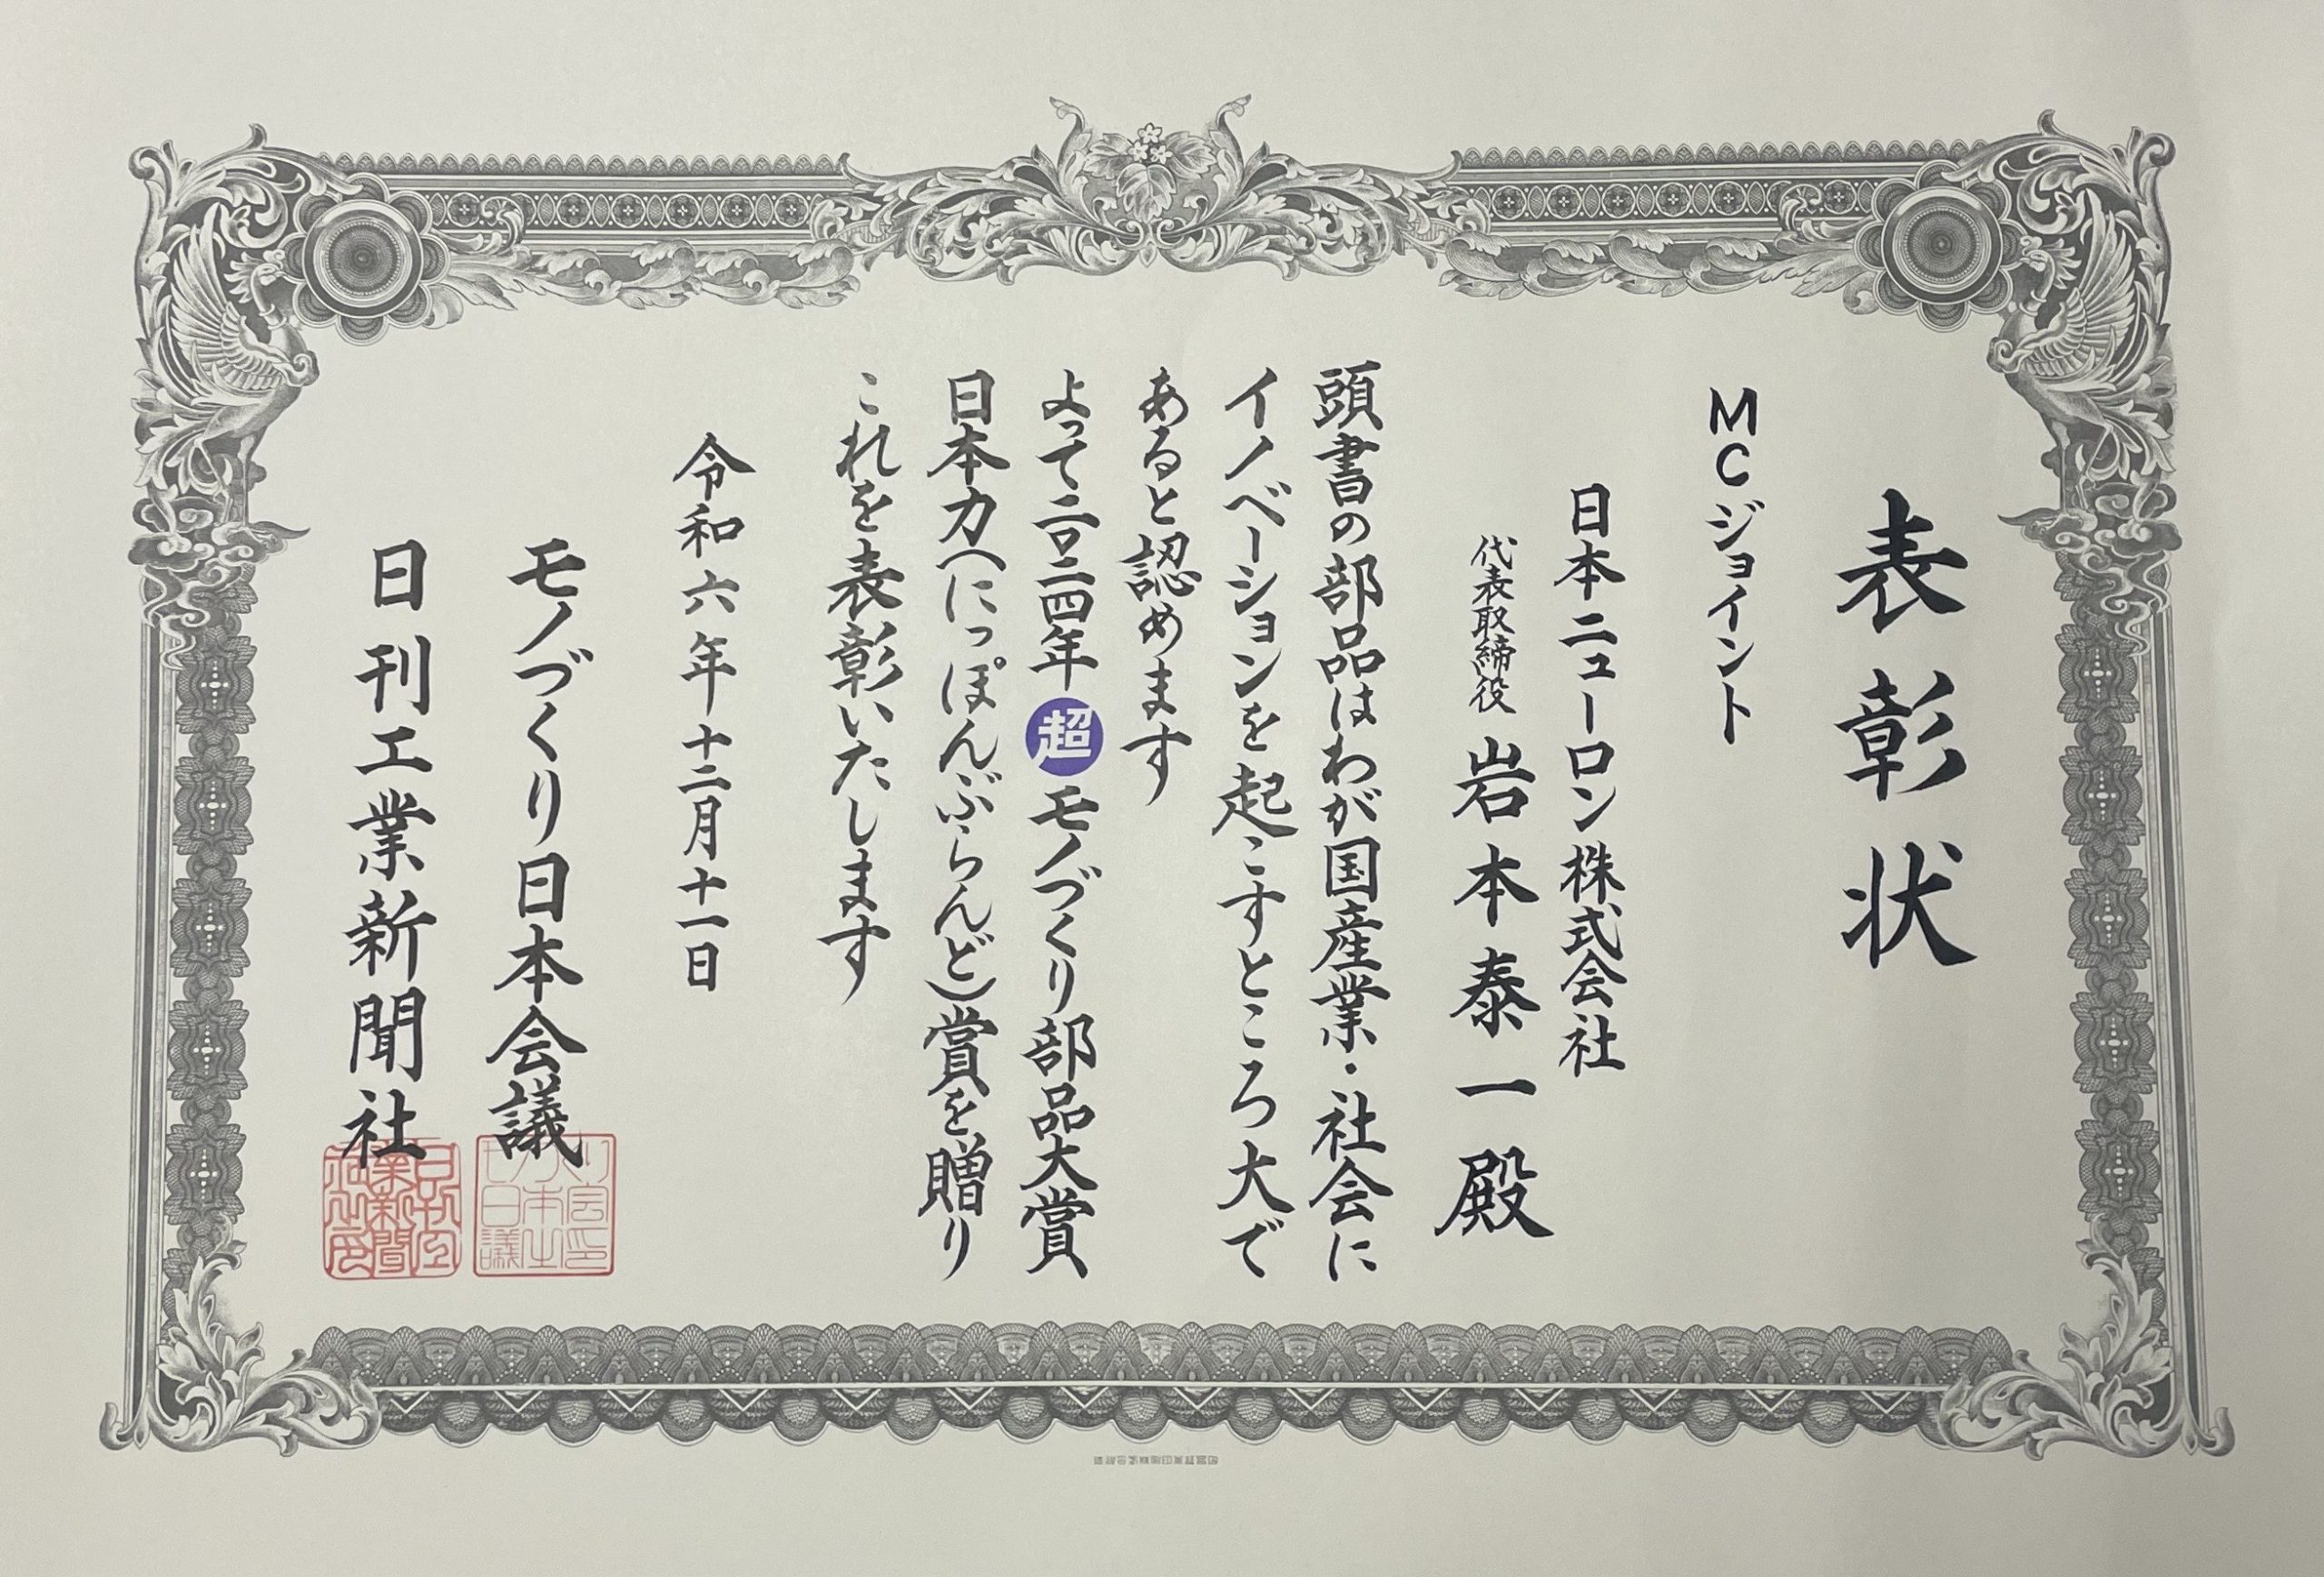 表彰状
MCジョイント
日本ニューロン株式会社
代表取締役 岩本泰一殿
頭書の部品はわが国産業・社会に
イノベーションを起こすところ大で
あると認めます
よって二〇二四年超モノづくり部品大賞
日本力(にっぽんぶらんど)賞を贈り
これを表彰いたします
令和六年十二月十一日
モノづくり日本会議
日刊工業新聞社